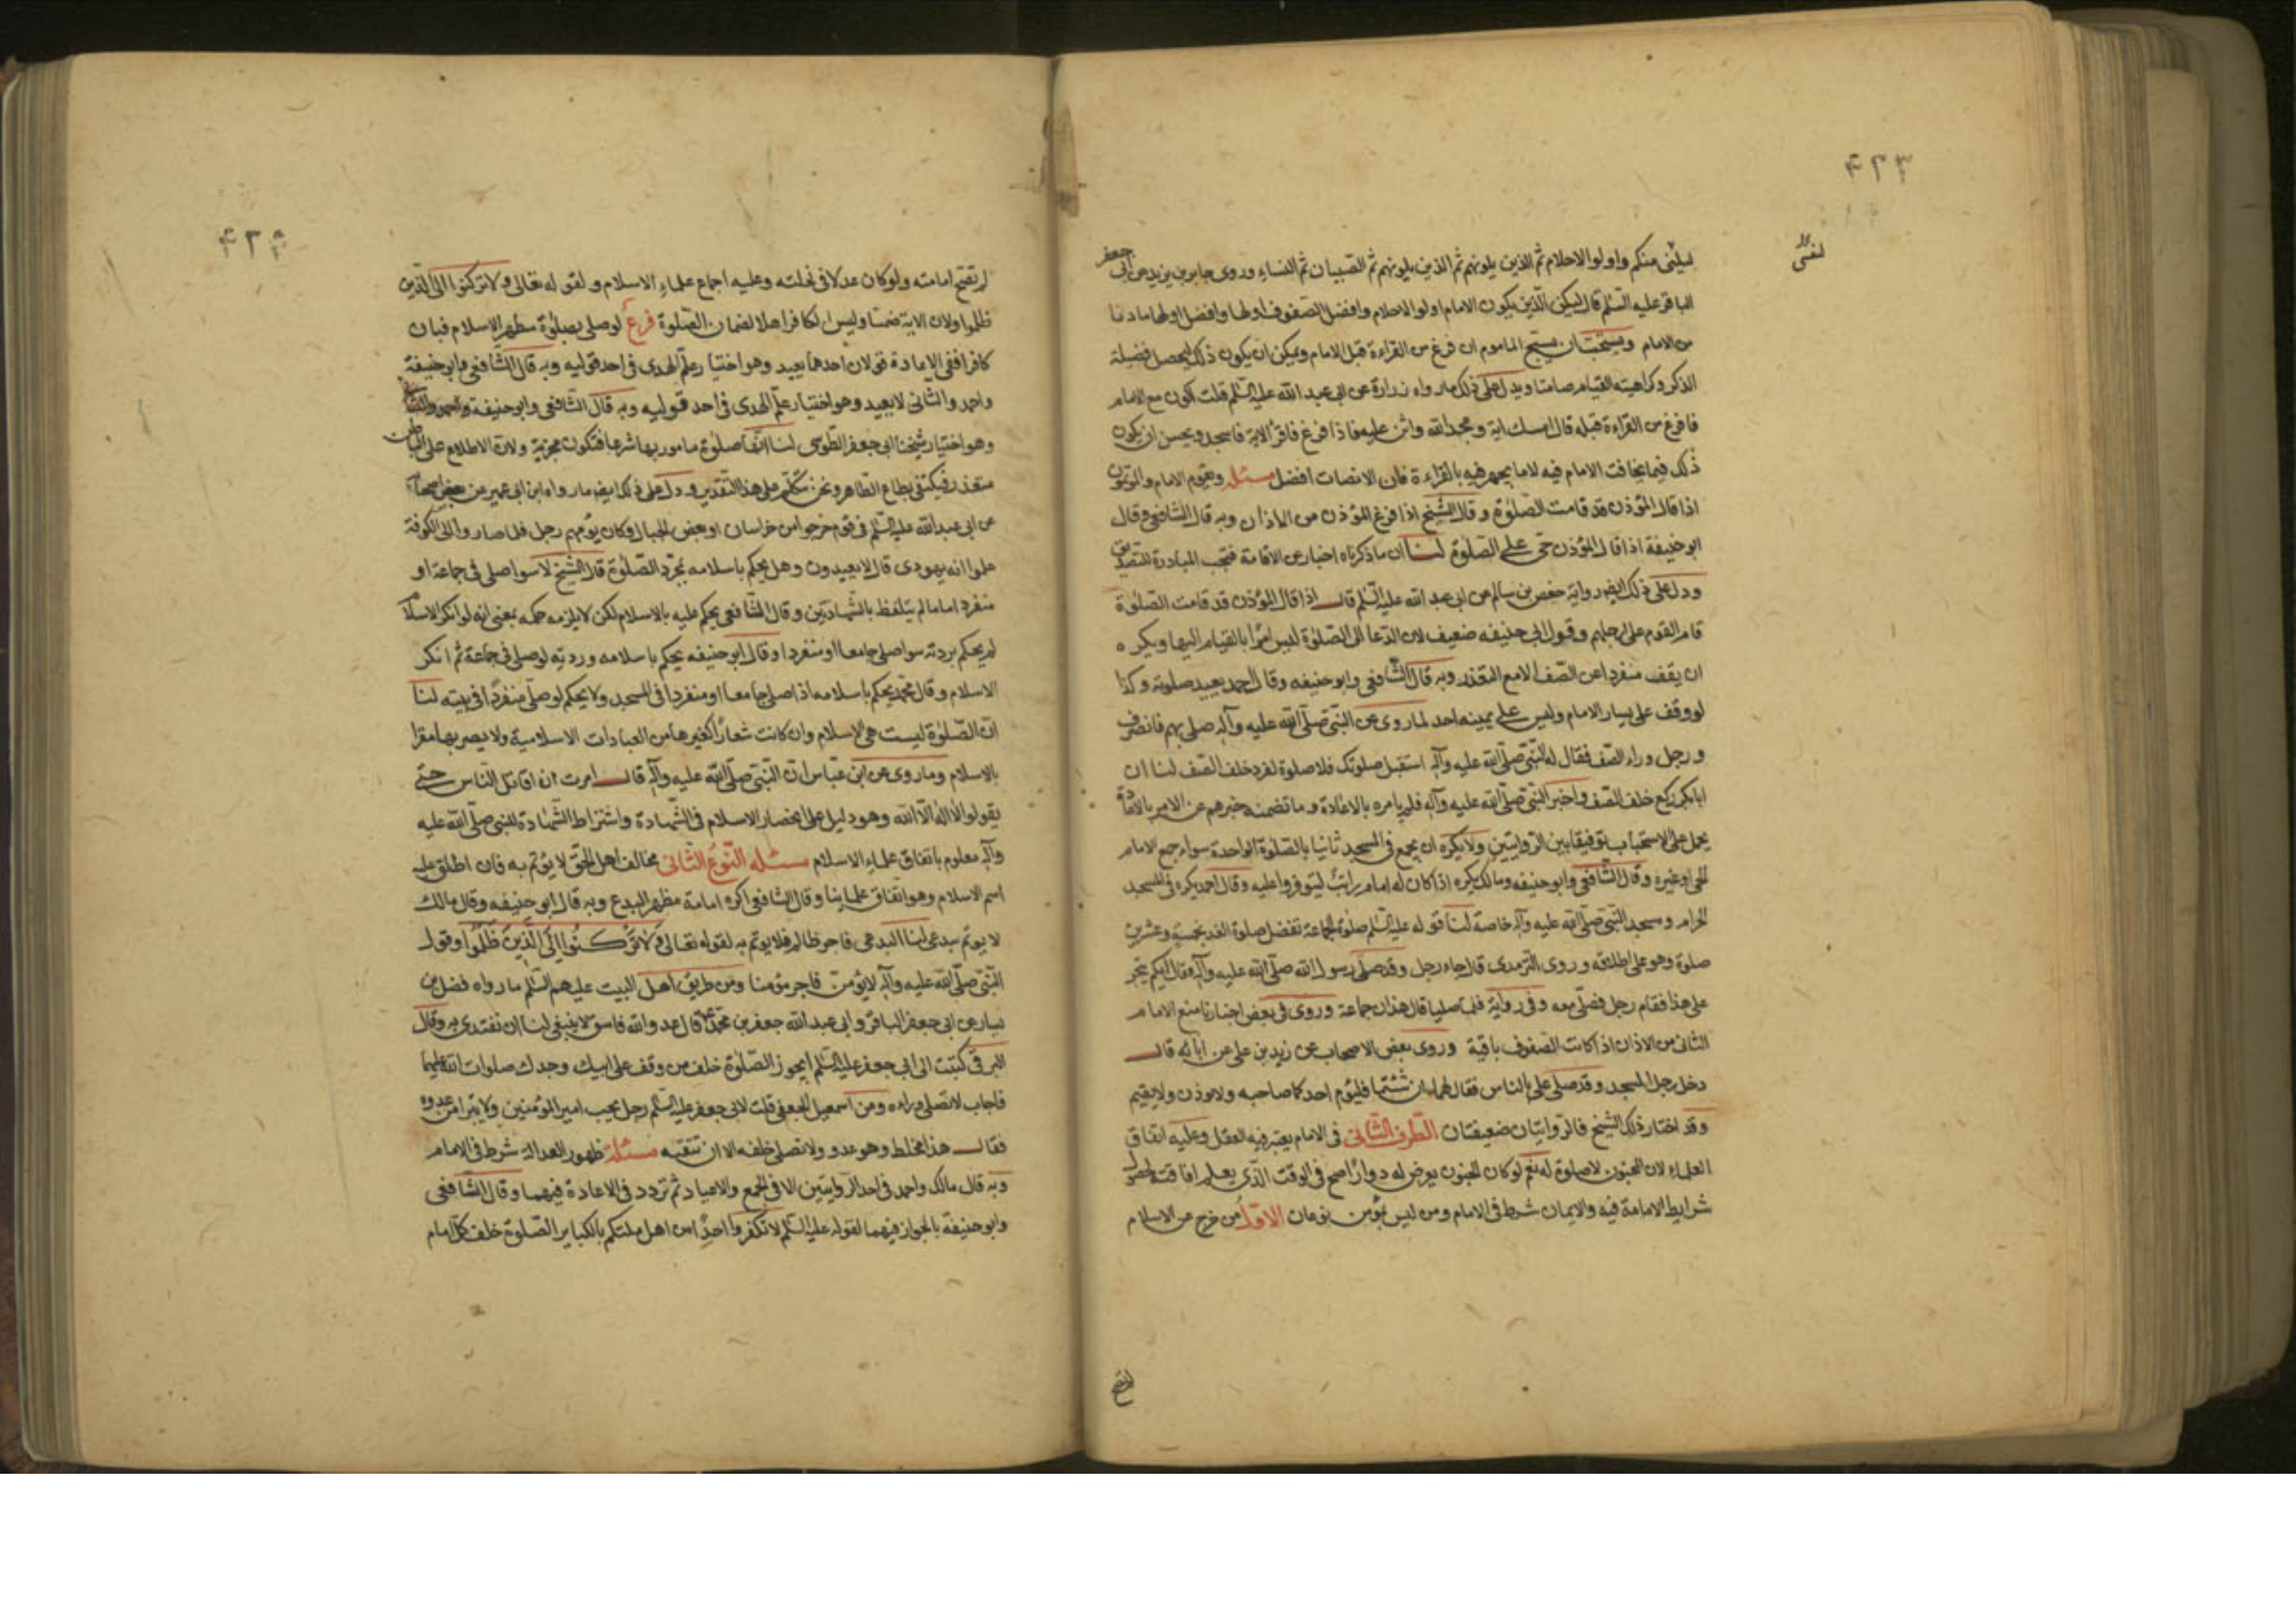 ٤٢٣
ليلنى منكم واولوا الاحلام ثم الذين يلونهم ثم الذين يلونهم ثم الصبيان ثم النساء وروى جابر بن يزيد عن ابى جعفر
الباقر عليه السلم قال ليكن الذين يكون الامام اولوا الاحلام وافضل الصفوف اولها وافضل اولها ما دنا
من الامام ويستحب ان يسبح الماموم ان فرغ من القراءة قبل الامام ويمكن ان يكون ذلك ليحصل فضيلة
الذكر وكراهية القيام صامتا ويدل على ذلك ما رواه زرارة عن ابى عبد الله عليه السلم قلت اكون مع الامام
فافرغ من القراءة قبله قال امسك اية ومجد الله واثن عليه فاذا فرغ فاقرأ الاية فاسجد ويحسن ان يكون
ذلك فيما يخافت الامام فيه لا ما يجهر فيه بالقراءة فان الانصات افضل مسئلة ويقوم الامام والموتمون
اذا قال المؤذن قد قامت الصلوة وقال الشيخ اذا فرغ المؤذن من الاذان وبه قال الشافعى وقال
ابو حنيفة اذا قال المؤذن حى على الصلوة لنا ان ما ذكرناه اخبار عن الاقامة فيجب المبادرة للتصديق
ودل على ذلك ايضا رواية حفص بن سالم عن ابى عبد الله عليه السلم قال اذا قال المؤذن قد قامت الصلوة
قام القوم على ارجلهم وقول ابى حنيفه ضعيف لان الدعا الى الصلوة ليس امرا بالقيام اليها ويكره
ان يقف منفردا عن الصف الا مع التعذر وبه قال الشافعى وابو حنيفه وقال احمد يعيد صلوته وكذا
لو وقف على يسار الامام وليس على يمينه احد لما روى عن النبى صلى الله عليه وآله صلى بهم فانصرف
ورجل وراء الصف فقال له النبى صلى الله عليه وآله استقبل صلوتك فلا صلوة لفرد خلف الصف لنا ان
ابا بكر ركع خلف الصف واخبر النبى صلى الله عليه وآله فلم يامره بالاعادة وما تضمنه خبرهم عن الامر بالاعادة
يحمل على الاستحباب توفيقا بين الروايتين ولا يكره ان يجمع فى المسجد ثانيا بالصلوة الواحدة سواء جمع الامام
الحى او غيره وقال الشافعى وابو حنيفه ومالك يكره اذا كان له امام راتب ليتوفروا عليه وقال احمد يكره فى المسجد
الحرام ومسجد النبى صلى الله عليه وآله خاصة لنا قوله عليه السلم صلوة الجماعة تفضل صلوة الفذ بخمسة وعشرين
صلوة وهو على اطلاقه وروى الترمذى قال جاء رجل وقد صلى رسول الله صلى الله عليه وآله فقال ايكم يتجر
على هذا فقام رجل فصلى معه وفى رواية فلما صليا قال هذان جماعة وروى فى بعض اخبارنا منع الامام
الثانى من الاذان اذا كانت الصفوف باقية وروى بعض الاصحاب عن زيد بن على عن ابائه قال
دخل رجل المسجد وقد صلى على بالناس فقال لهما ان شئتما فليؤم احدكما صاحبه ولا يوذن ولا يقيم
وقد اختار ذلك الشيخ فالروايتان ضعيفتان الطرف الثانى فى الامام يعتبر فيه العقل وعليه اتفاق
العلماء لان المجنون لا صلوة له نعم لو كان الجنون يعرض له دوارا صح فى الوقت الذى يعلم افاقته لحصول
شرايط الامامة فيه والايمان شرط فى الامام ومن ليس بمؤمن نوعان الاول من خرج عن الاسلام
لم تصح
لم تصح امامته ولو كان عدلا فى نحلته وعليه اجماع علماء الاسلام ولقوله تعالى ولا تركنوا الى الذين
ظلموا ولان الايتمام ضمان وليس الكافر اهلا لضمان الصلوة فرع لو صلى بصلوة مظهر الاسلام فبان
كافرا ففى الاعادة قولان احدهما يعيد وهو اختيار علم الهدى فى احد قوليه وبه قال الشافعى وابو حنيفة
واحمد والثانى لا يعيد وهو اختيار علم الهدى فى احد قوليه
وهو اختيار شيخنا ابى جعفر الطوسى لنا انها صلوة مامور بها شرعا فتكون مجزية ولان الاطلاع على الباطن
متعذر فيكتفى بطاع الظاهر ونحن نتكلم على هذا التقدير ودل على ذلك ايضا ما رواه ابن ابى عمير من بعض اصحابه
عن ابى عبد الله عليه السلم فى قوم خرجوا من خراسان او بعض الجبال وكان يؤمهم رجل فلما صاروا الى الكوفة
علموا انه يهودى قال لا يعيدون وهل يحكم باسلامه بمجرد الصلوة قال الشيخ لا سوا صلى فى جماعة او
منفردا ما لم يتلفظ بالشهادتين وقال الشافعى يحكم عليه بالاسلام لكن لا يلزمه حكمه بمعنى انه لو انكر الاسلام
لم يحكم بردته سوا صلى جامعا او منفردا وقال ابو حنيفه يحكم باسلامه وردته لو صلى فى جماعة ثم انكر
الاسلام وقال محمد يحكم باسلامه اذا صلى جامعا او منفردا فى المسجد ولا يحكم لو صلى منفردا فى بيته لنا
ان الصلوة ليست هى الاسلام وان كانت شعارا كغيرها من العبادات الاسلامية ولا يصير بها مقرا
بالاسلام وما روى عن ابن عباس ان النبى صلى الله عليه وآله قال امرت ان اقاتل الناس حتى
يقولوا لا اله الا الله وهو دليل على انحصار الاسلام فى الشهادة واشتراط الشهادة للنبى صلى الله عليه
وآله معلوم باتفاق علماء الاسلام مسئله النوع الثانى مخالف اهل الحق لا يؤتم به فان اطلق عليه
اسم الاسلام وهو اتفاق علماينا وقال الشافعى اكره امامة مظهر البدع وبه قال ابو حنيفه وقال مالك
لا يوتم ببدعى لنا البدعى فاجر ظالم فلا يوتم به لقوله تعالى ولا تركنوا الى الذين ظلموا وقول
النبى صلى الله عليه وآله لا يؤمن فاجر مؤمنا ومن طريق اهل البيت عليهم السلم ما رواه فضل بن
يسار عن ابى جعفر الباقر وابى عبد الله جعفر بن محمد قال عدو الله فاسق لا ينبغى لنا ان نقتدى به وقال
البرقى كتبت الى ابى جعفر عليه السلم ايجوز الصلوة خلف من وقف على ابيك وجدك صلوات الله عليهما
فاجاب لا تصل وراءه ومن اسمعيل الجعفى قلت لابى جعفر عليه السلم رجل يحب امير المؤمنين ولا يتبرأ من عدوه
فقال هذا مخلط وهو عدو ولا تصل خلفه الا ان تتقيه مسئلة ظهور العدالة شرط فى الامام
وبه قال مالك واحمد فى احد الروايتين الا فى الجمع والاعياد ثم تردد فى الاعادة فيهما وقال الشافعى
وابو حنيفة بالجواز فيهما لقوله عليه السلم لا تكفروا احدا من اهل ملتكم بالكباير الصلوة خلف كل امام